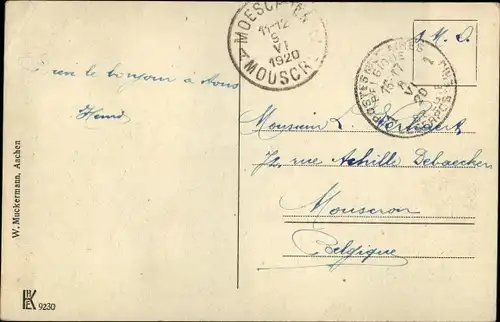 MOESCROEN
11-12
9
VI
1920
MOUSCRON
S. M.
POSTES MILITAIRES
bien le bonjour à tous
Henri
Monsieur L.
72, rue Achille Debaecker
Mouscron
Belgique
W. Muckermann, Aachen
9230